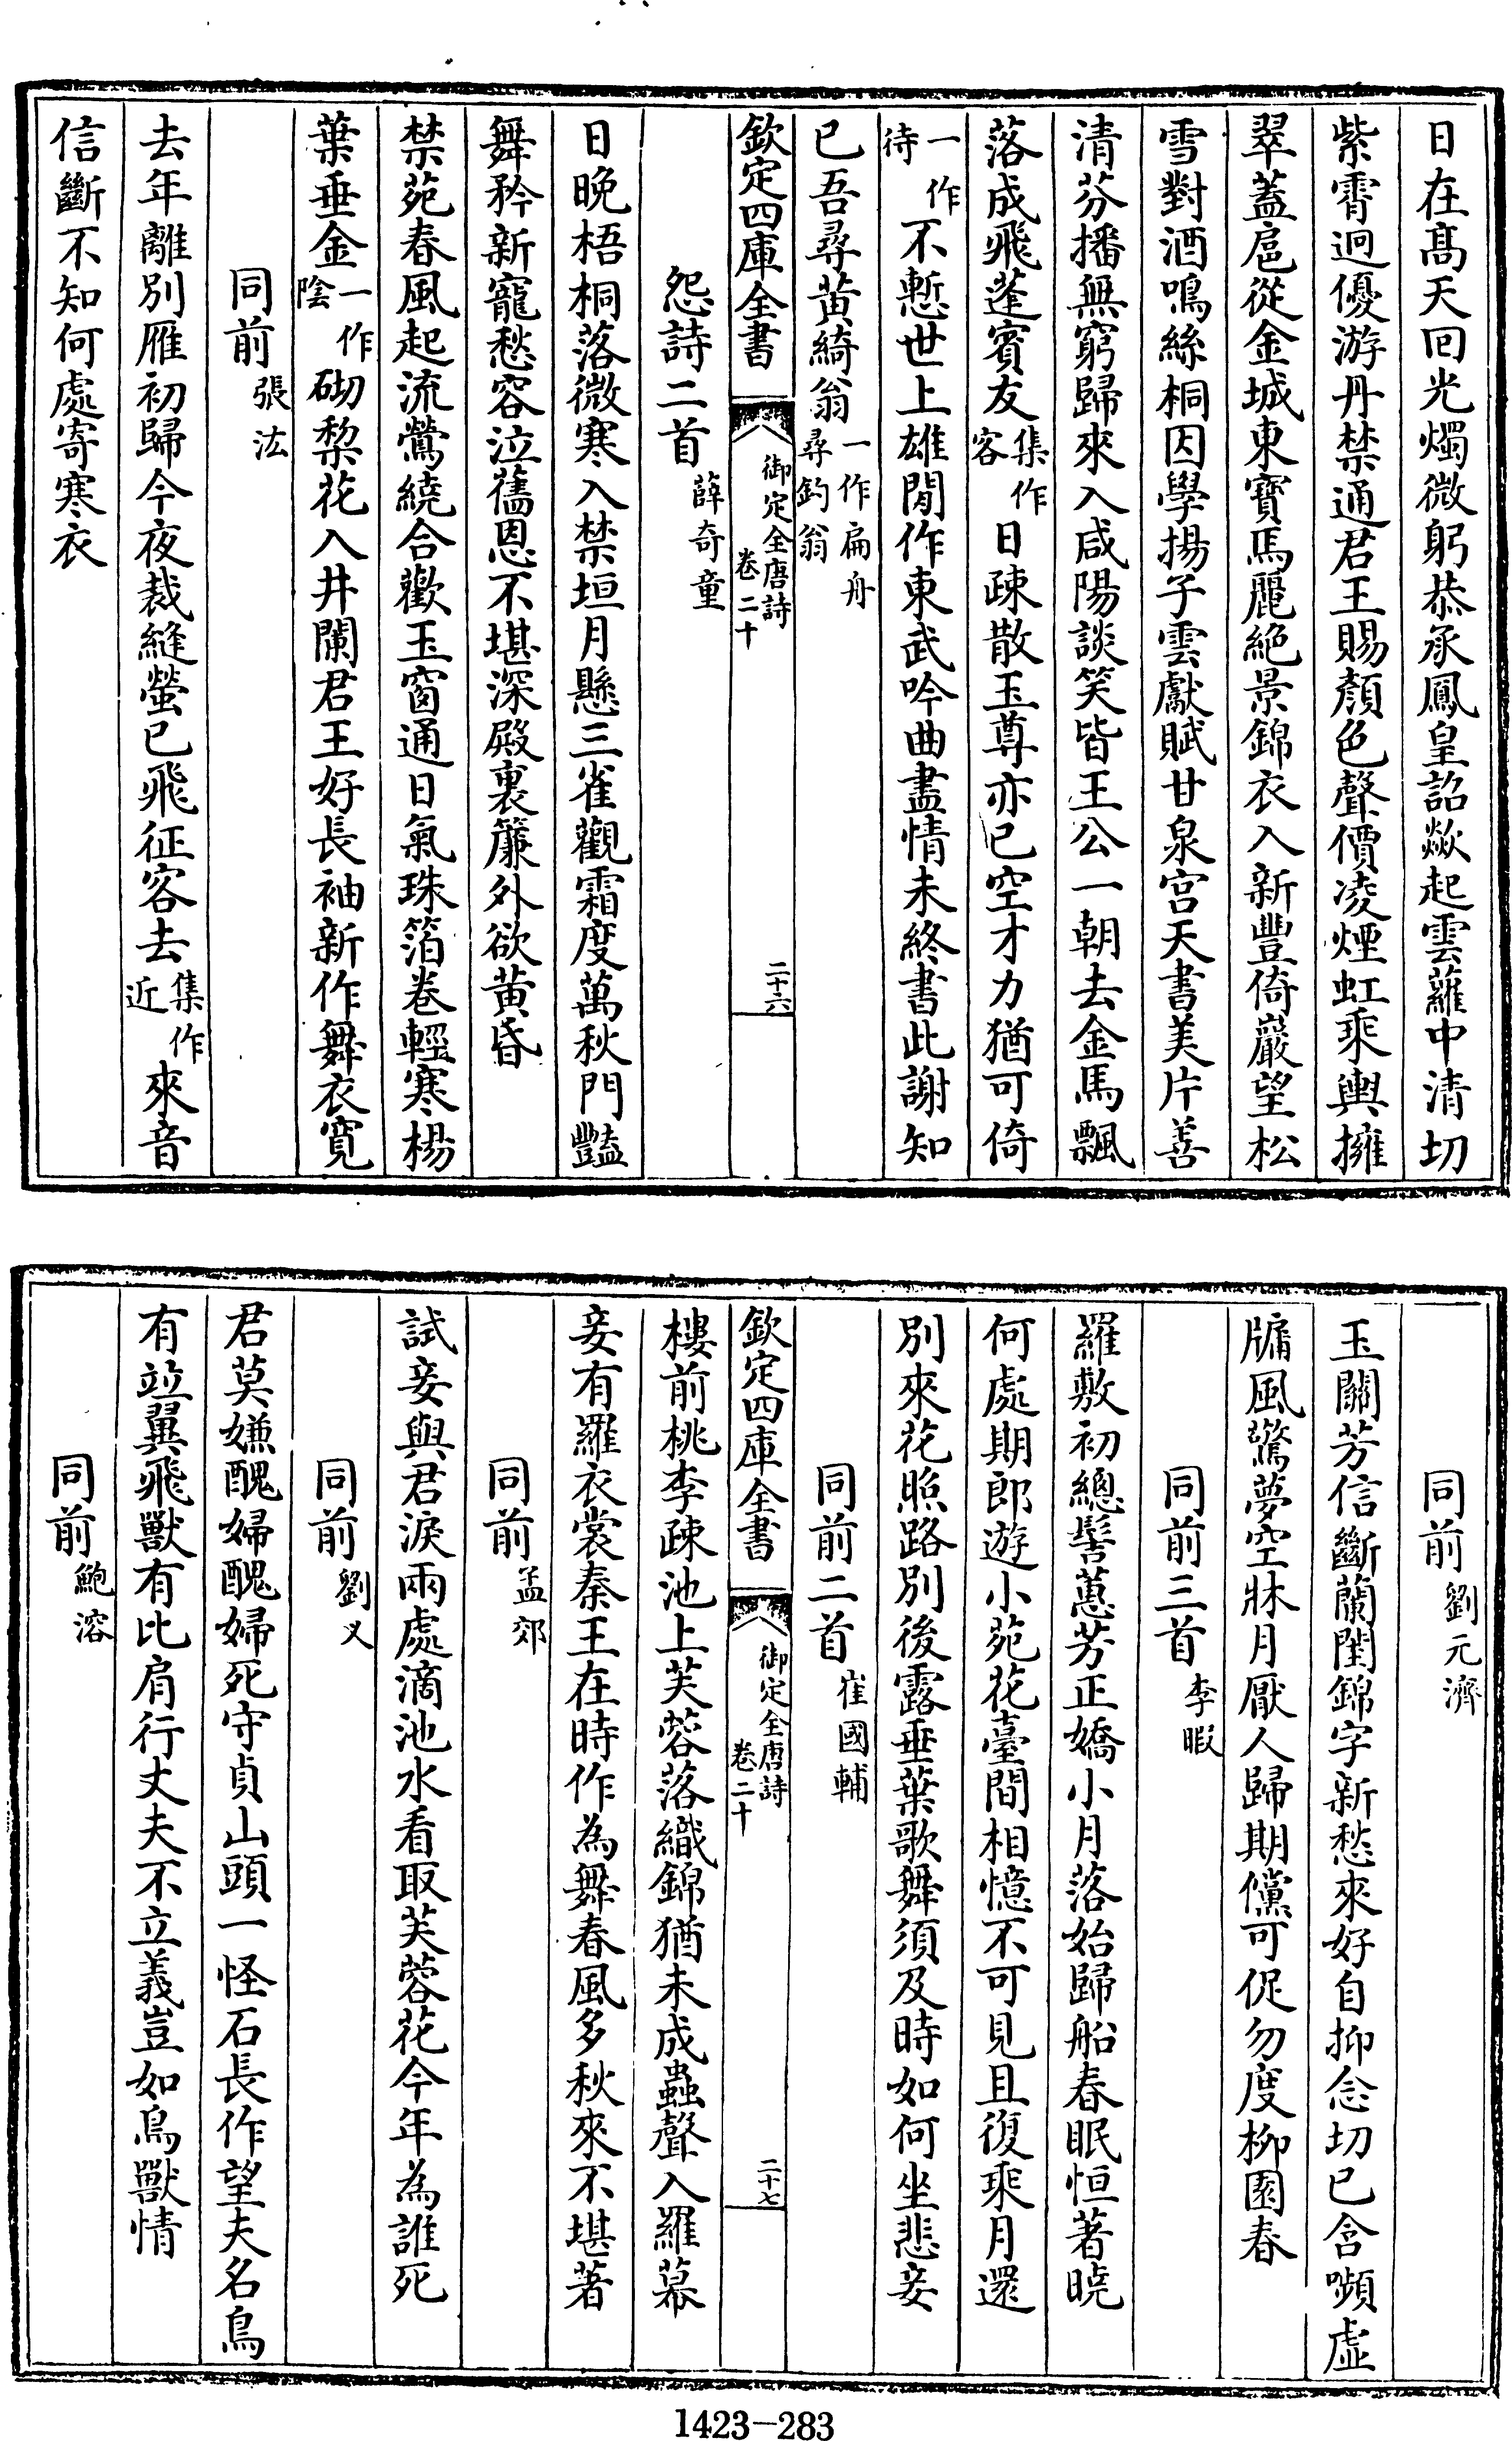 日在髙天囘光燭微躬恭承鳳皇詔歘起雲蘿中清切
紫霄迥優游丹禁通君王賜顔色聲價凌煙虹乘輿擁
翠蓋扈從金城東寳馬麗絶景錦衣入新豐倚巖望松
雪對酒鳴絲桐因學揚子雲獻賦甘泉宫天書美片善
清芬播無窮歸來入咸陽談笑皆王公一朝去金馬飄
落成飛蓬賓友集作客日疎散玉尊亦已空才力猶可倚
一作待不慙世上雄閒作東武吟曲盡情未終書此謝知
已吾尋黄綺翁一作扁舟尋釣翁
欽定四庫全書 御定全唐詩卷二十 二十六
怨詩二首 薛奇童
日晚梧桐落微寒入禁垣月懸三雀觀霜度萬秋門豔
舞矜新寵愁容泣舊恩不堪深殿裏簾外欲黄昏
禁苑春風起流鶯繞合歡玉窗通日氣珠箔卷輕寒楊
葉垂金一作陰砌棃花入井闌君王好長袖新作舞衣寛
同前 張汯
去年離别雁初歸今夜裁縫螢已飛征客去集作近來音
信斷不知何處寄寒衣
同前 劉元濟
玉關芳信斷蘭閨錦字新愁來好自抑念切已含嚬虚
牖風驚夢空牀月厭人歸期儻可促勿度柳園春
同前三首 李暇
羅敷初總髻蕙芳正嬌小月落始歸船春眠恒著曉
何處期郎遊小苑花臺間相憶不可見且復乘月還
别來花照路别後露垂葉歌舞須及時如何坐悲妾
同前二首 崔國輔
樓前桃李疎池上芙蓉落織錦猶未成蟲聲入羅幕
妾有羅衣裳秦王在時作為舞春風多秋來不堪著
欽定四庫全書 御定全唐詩卷二十 二十七
同前 孟郊
試妾與君淚兩處滴池水看取芙蓉花今年為誰死
同前 劉义
君莫嫌醜婦醜婦死守貞山頭一怪石長作望夫名鳥
有竝翼飛獸有比肩行丈夫不立義豈如鳥獸情
同前 鮑溶
1423-283